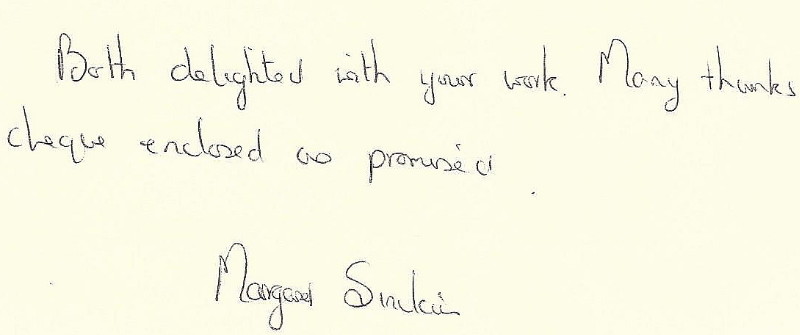 Both delighted with your work. Many thanks
cheque enclosed as promised.
Margaret Sinclair